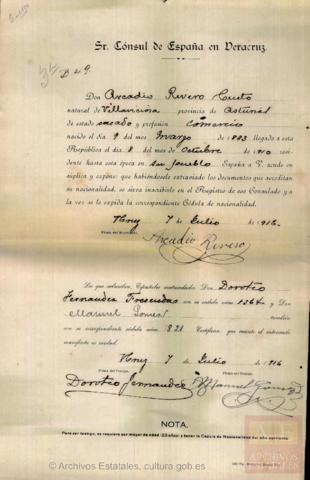 B 49.
Sr. Cónsul de España en Veracruz.
Don Arcadio Rivero Cueto
natural de Villaviciosa provincia de Asturias
de estado casado y profesión Comercio
nacido el día 9 del mes Marzo de 1883 llegado a esta
República el día 8 del mes de Octubre de 1910 resi-
dente hasta esta época en su pueblo España a V. acude en
súplica y expone: que habiéndosele extraviado los documentos que acreditan
su nacionalidad, se sirva inscribirle en el Registro de ese Consulado y a la
vez se le expida la correspondiente Cédula de nacionalidad.
7 de Julio de 1916.
Firma del Interesado,
Arcadio Rivero
Los que subscriben, Españoles matriculados: Don Doroteo
Fernandez con su cédula núm. 1364 y Don
Manuel Gomez también
con su correspondiente cédula núm. 821. Certifican que cuanto el interesado
manifiesta es verdad.
7 de Julio de 1916
Firma del Testigo, Firma del Testigo,
Doroteo Fernandez Manuel Gomez
NOTA.
Para ser testigo, se requiere ser mayor de edad (23 años) y tener la Cédula de Nacionalidad del año corriente.
ARCHIVOS
ESTATALES
© Archivos Estatales, cultura.gob.es